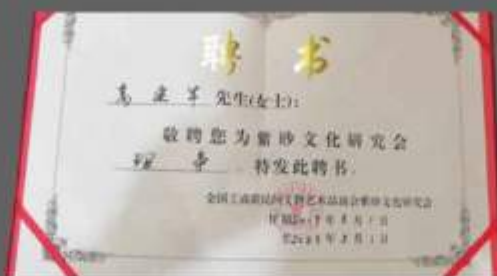 聘书
高建军 先生(女士):
敬聘您为紫砂文化研究会
理事 特发此聘书。
全国工商联民间文物艺术品商会紫砂文化研究会